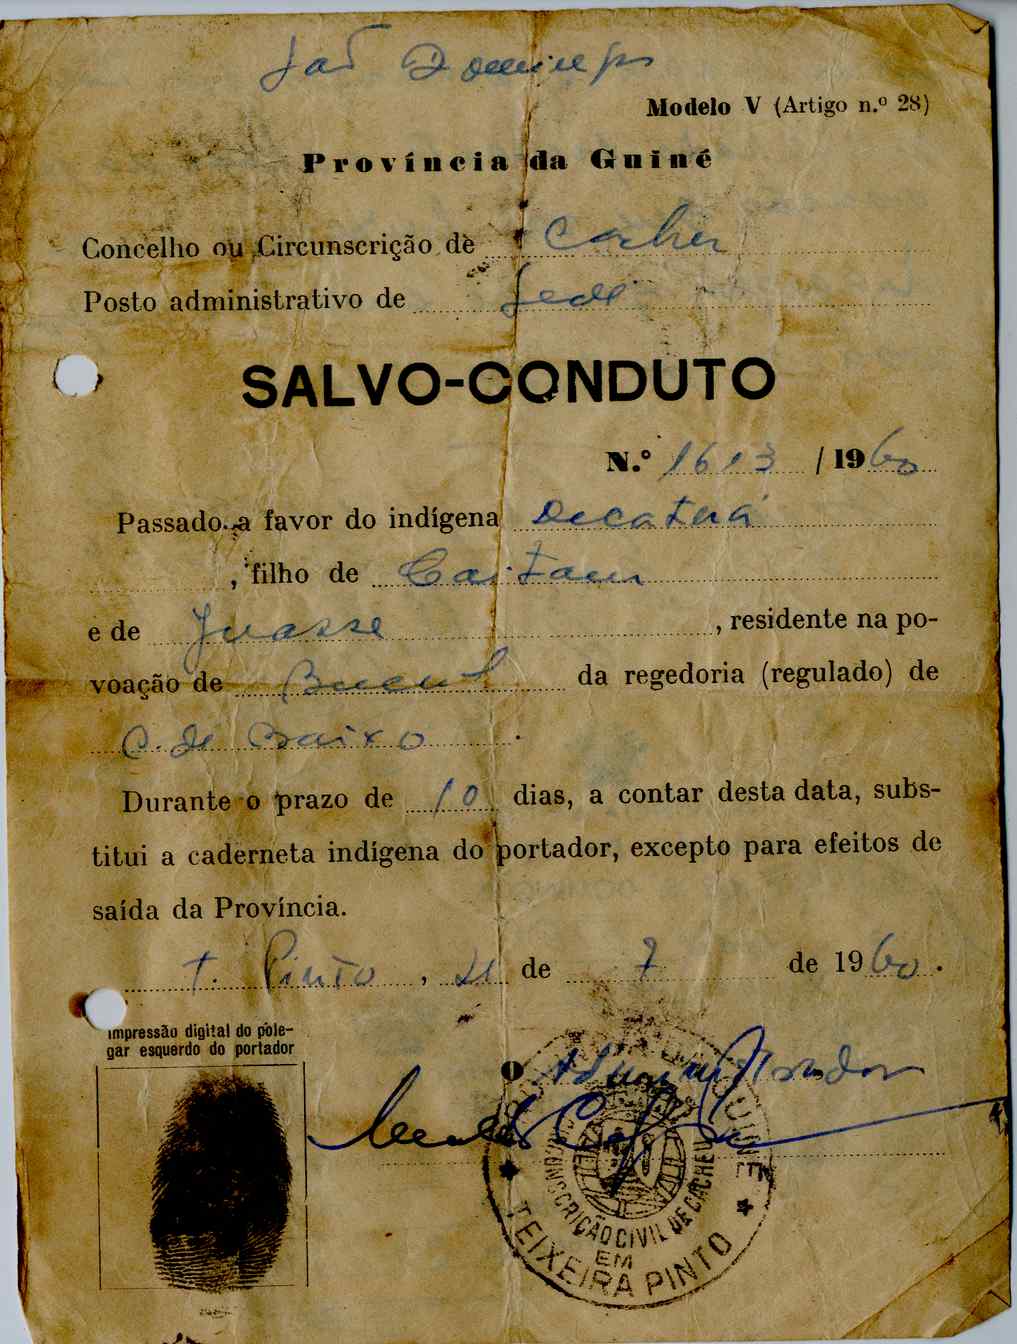 São Domingos
Modelo V (Artigo n.º 28)
Província da Guiné
Concelho ou Circunscrição de Cacheu
Posto administrativo de Sede
SALVO-CONDUTO
N.º 1613 / 1960
Passado a favor do indígena
, filho de Caitam
e de Juasse, residente na po-
voação de da regedoria (regulado) de
C. de Baixo.
Durante o prazo de 10 dias, a contar desta data, subs-
titui a caderneta indígena do portador, excepto para efeitos de
saída da Província.
T. Pinto, 21 de 7 de 1960.
Impressão digital do pole-
gar esquerdo do portador
O Administrador
CIRCUNSCRIÇÃO CIVIL DE CACHEU
EM
TEIXEIRA PINTO